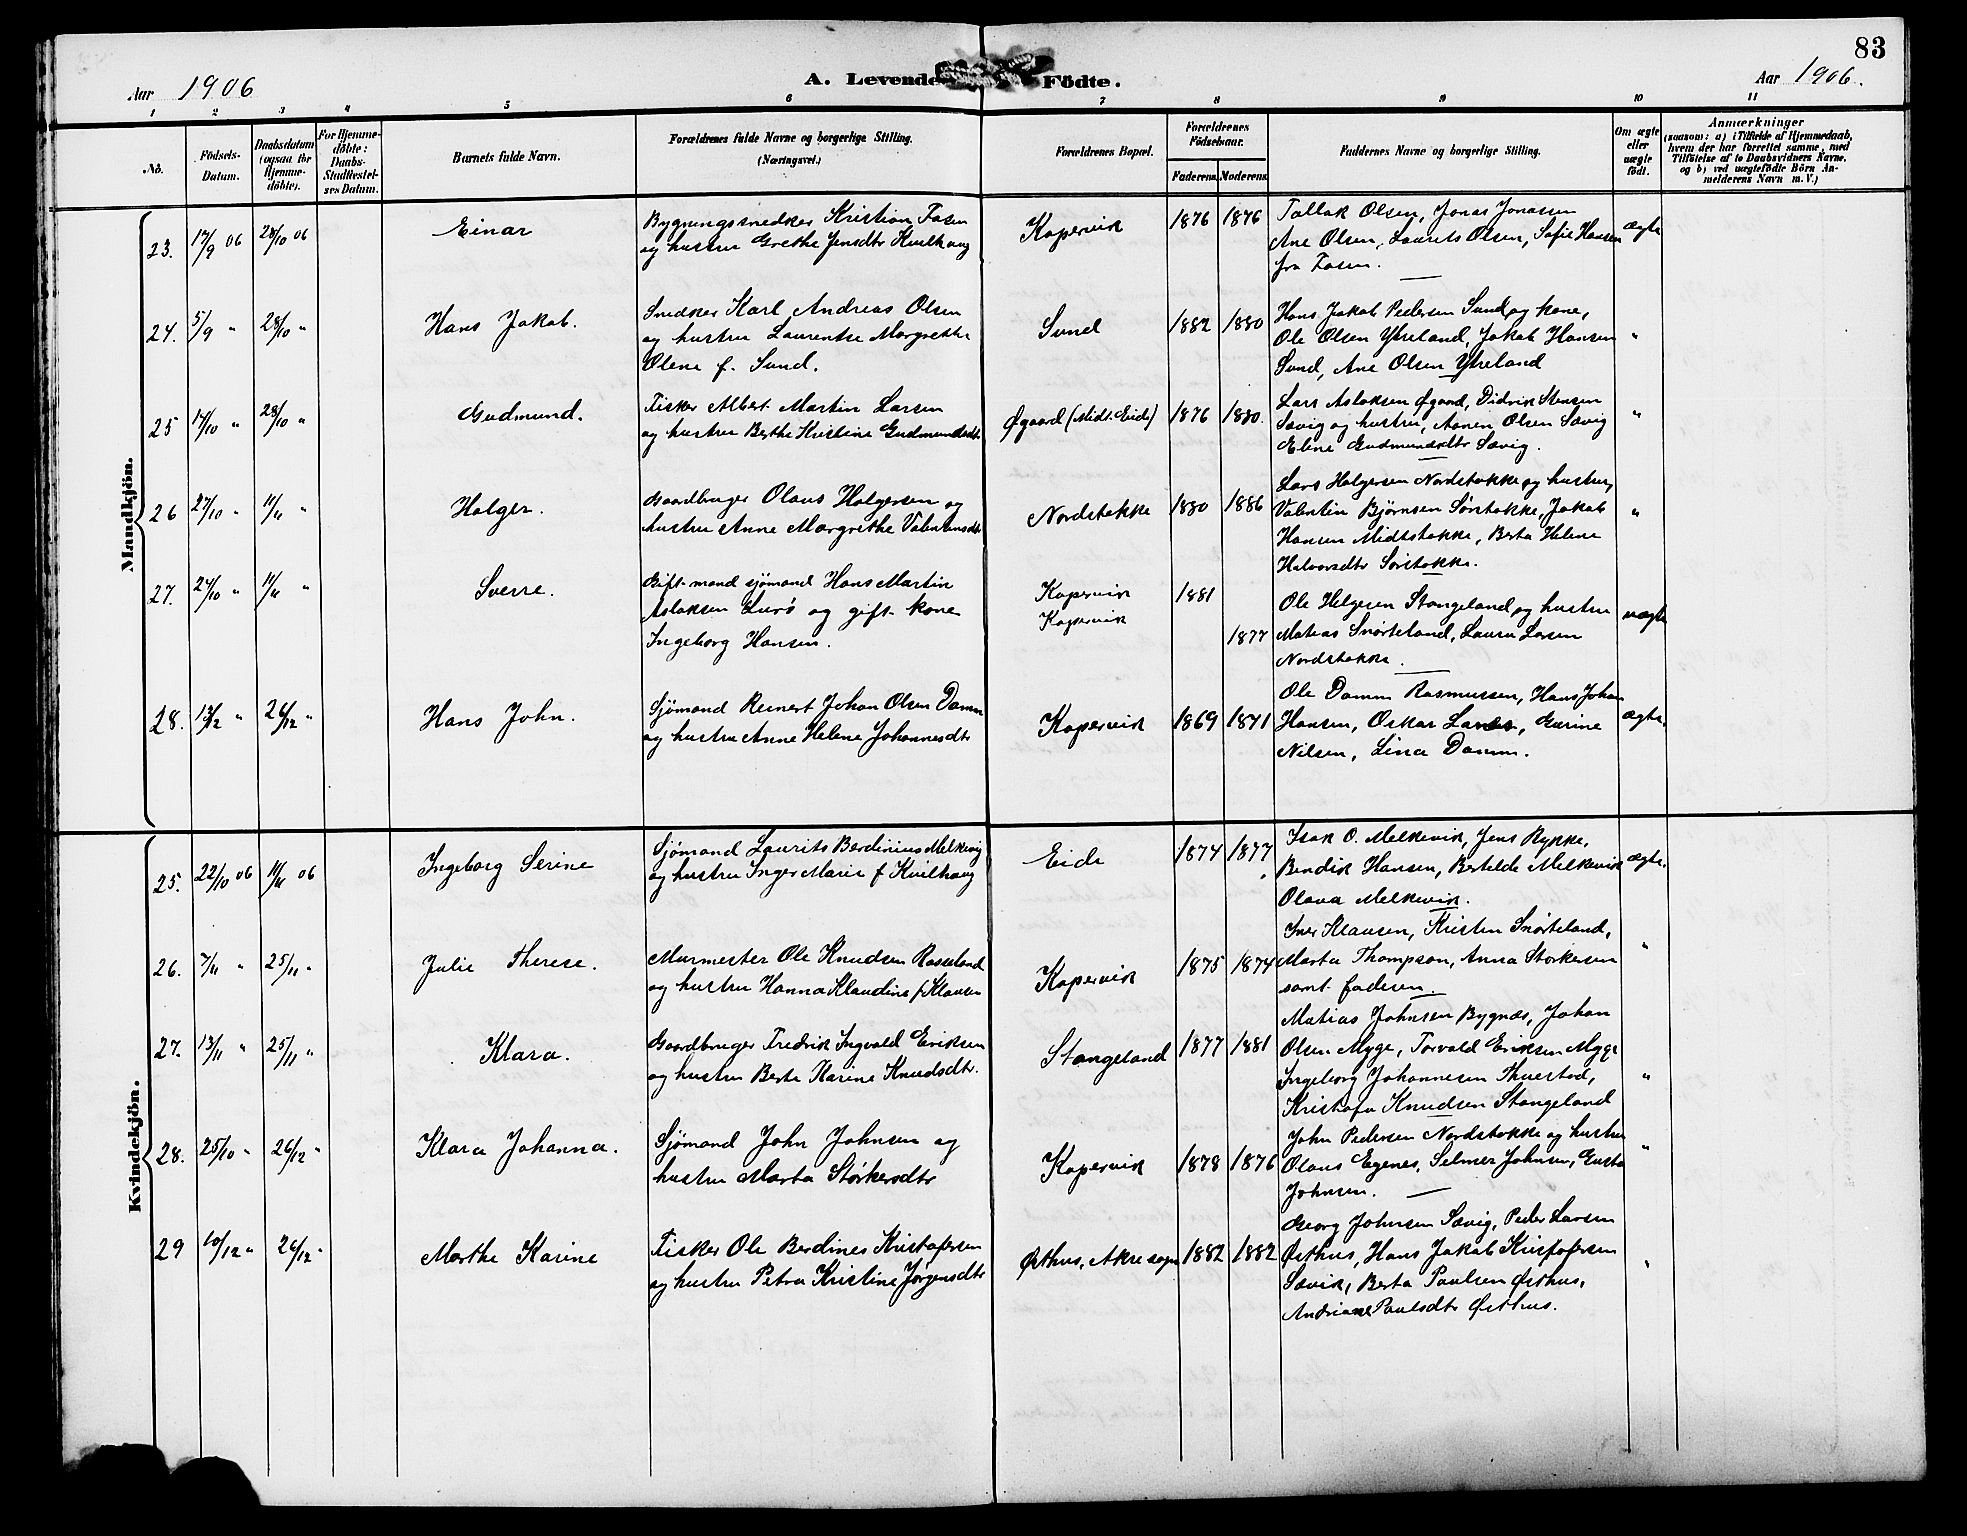 83
Aar 1906
A. Levende Fødte.
Aar 1906.
1 2 3 4 5 6 7 8 9 10 11
No.
Fødsels-
Datum.
Daabsdatum
(ogsaa for
Hjemme-
døbte).
For Hjemme-
døbte:
Daabs-
Stadfæstel-
ses Datum.
Barnets fulde Navn.
Forældrenes fulde Navne og borgerlige Stilling.
(Næringsvei.)
Forældrenes Bopæl.
Forældrenes
Fødselsaar.
Faderens. Moderens.
Faddernes Navne og borgerlige Stilling.
Om ægte
eller
uægte
født.
Anmærkninger
(saasom: a) i Tilfælde af Hjemmedaab,
hvem der har forrettet samme, med
Tilføielse af to Daabsvidners Navne,
og b) ved uægtefødte Børn An-
melderens Navn m. V.)
Mandkjøn.
23. 17/9 06 28/10 06 Einar
Bygningssnedker Kristian Fosen
og hustru Grethe Jensdtr Kvilhaug
Kopervik 1876 1876
Tallak Olsen, Jonas Jonassen
Ane Olsen, Laurits Olsen, Sofie Hansen
fra Fosen.
ægte
24. 5/9 " 28/10 " Hans Jakob.
Snedker Karl Andreas Olsen
og hustru Laurentse Margrethe
Olene f. Sund.
Sund 1882 1880
Hans Jakob Pedersen Sund og kone,
Ole Olsen Ytreland, Jakob Hansen
Sund, Ane Olsen Ytreland
"
25 17/10 " 28/10 " Gudmund.
Fisker Albert Martin Larsen
og hustru Berthe Kristine Gudmundsdtr
Øgaard (Midt. Eide) 1876 1880.
Lars Aslaksen Øgaard, Didrik Stensen
Sævig og hustru, Aanen Olsen Sævig
Elene Gudmundsdtr Sævig.
"
26 27/10 " 11/11 " Holger.
Gaardbruger Olaus Holgersen og
hustru Anne Margrethe Valentinsdtr
Nordstokke 1880 1886
Lars Holgersen Nordstokke og hustru,
Valentin Bjørnsen Sørstokke, Jakob
Hansen Midtstokke, Berta Helene
Halvorsdtr Sørstokke.
"
27. 24/10 " 11/11 " Sverre.
Gift mand sjømand Hans Martin
Aslaksen Lurø og gift kone
Ingeborg Hansen.
Kopervik
Kopervik
1881
1877
Ole Helgesen Stangeland og hustru
Matias Snørteland, Laura Larsen
Nordstokke.
uægte
28. 13/2 " 26/12 " Hans John.
Sjømand Reinert Johan Olsen Damm
og hustru Anne Helene Johannesdtr
Kopervik 1869 1871
Ole Damm Rasmussen, Hans Johan
Hansen, Oskar Lanes, Gurine
Nilsen, Lina Damm.
ægte.
Kvindekjøn.
25. 22/10 06 11/11 06 Ingeborg Serine
Sjømand Laurits Berdinius Melkevig
og hustru Inger Marie f Kvilhaug
Eide 1874 1877
Isak O. Melkevik, Jens Rykke,
Bendik Hansen, Bertelde Melkevik
Olava Melkevik.
ægte.
26. 7/11 " 25/11 " Julie Therese.
Murmester Ole Knudsen Rosseland
og hustru Hanna Klaudine f Klausen
Kopervik 1875 1874
Iver Klausen, Kristen Snørteland,
Marta Thompson, Anna Størkersen
samt faderen.
"
27. 13/11 " 25/11 " Klara.
Gaardbruger Fredrik Ingvald Eriksen
og hustru Berta Karine Knudsdtr.
Stangeland 1877 1881
Matias Johnsen Bygnæs, Johan
Olsen Myge, Torvald Eriksen Myge
Ingeborg Johannesen Thuestad,
Kristofa Knudsen Stangeland
"
28. 25/10 " 26/12 " Klara Johanna.
Sjømand John Johnsen og
hustru Marta Størkersdtr
Kopervik 1878 1876
John Pedersen Nordstokke og hustru
Olaus Egenes, Selmer Johnsen, Gusta
Johnsen.
"
29 10/12 " 26/12 " Marthe Karine
Fisker Ole Berdines Kristofersen
og hustru Petra Kristine Jørgensdtr
Østhus, Akre sogn 1882 1882
Georg Johnsen Sævig, Peder Larsen
Østhus, Hans Jakob Kristofersen
Sævik, Berta Paulsen Østhus,
Andriane Paulsdtr Østhus.
"